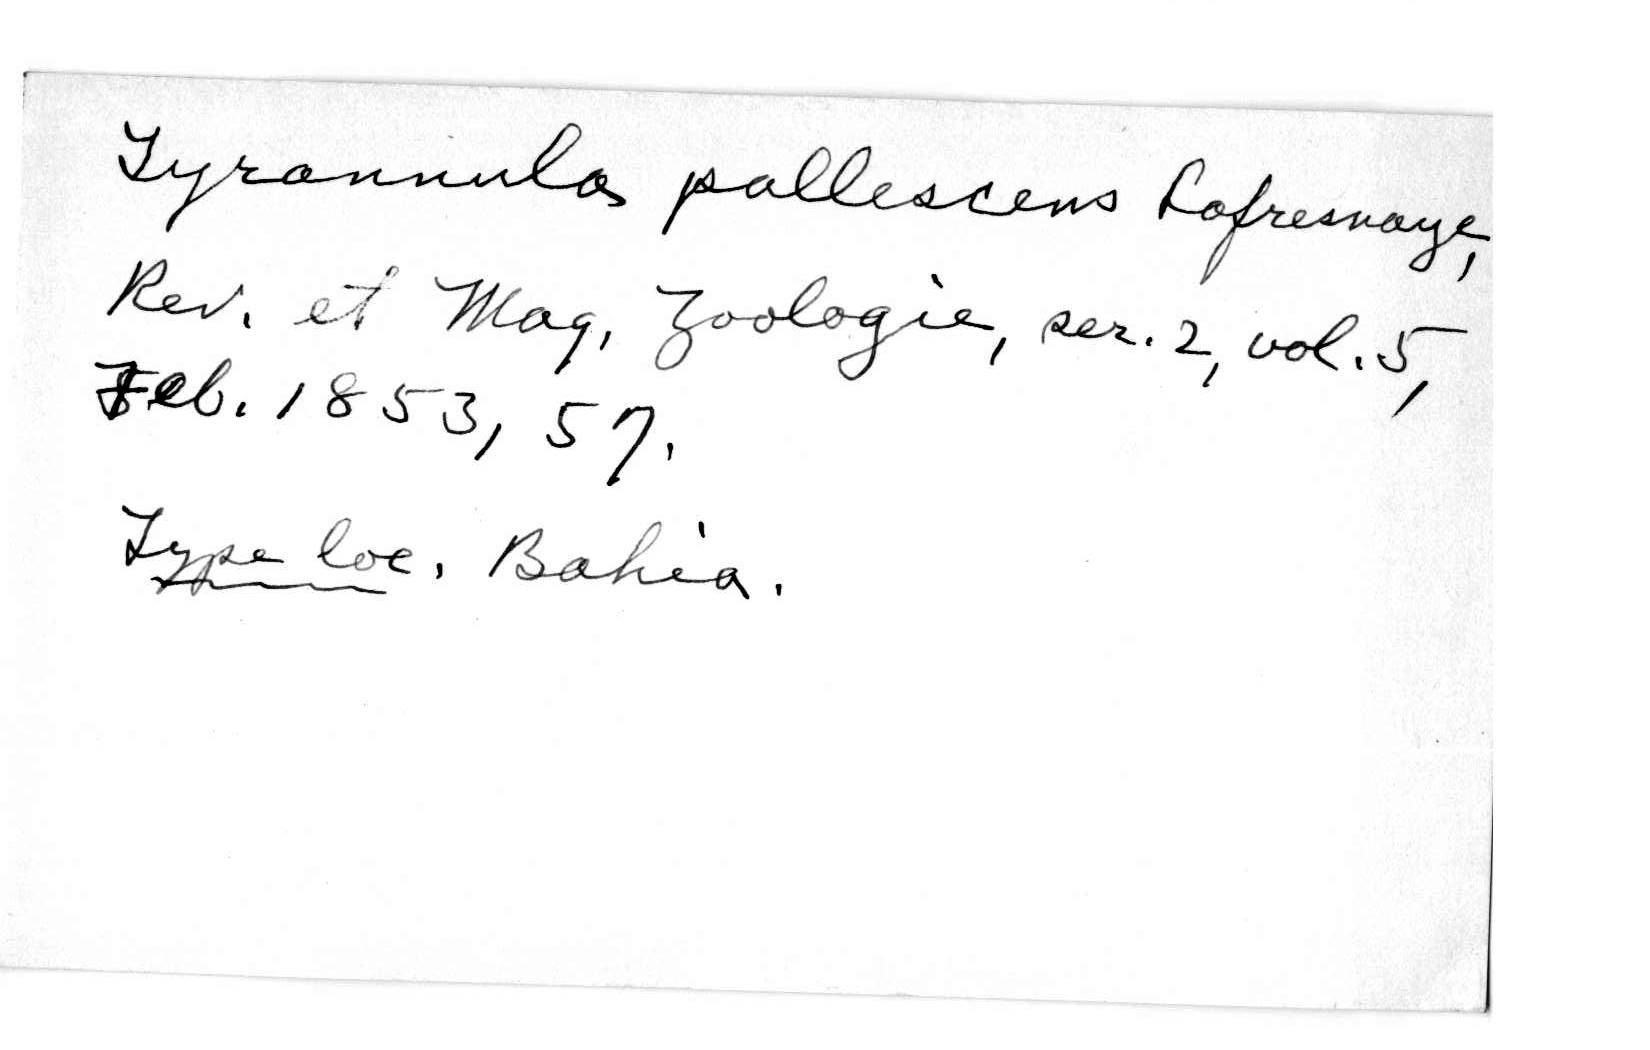 Tyrannula pallescens Lafresnaye,
Rev. et Mag. Zoologie, ser. 2, vol. 5,
Feb. 1853, 57.
Type loc. Bahia.